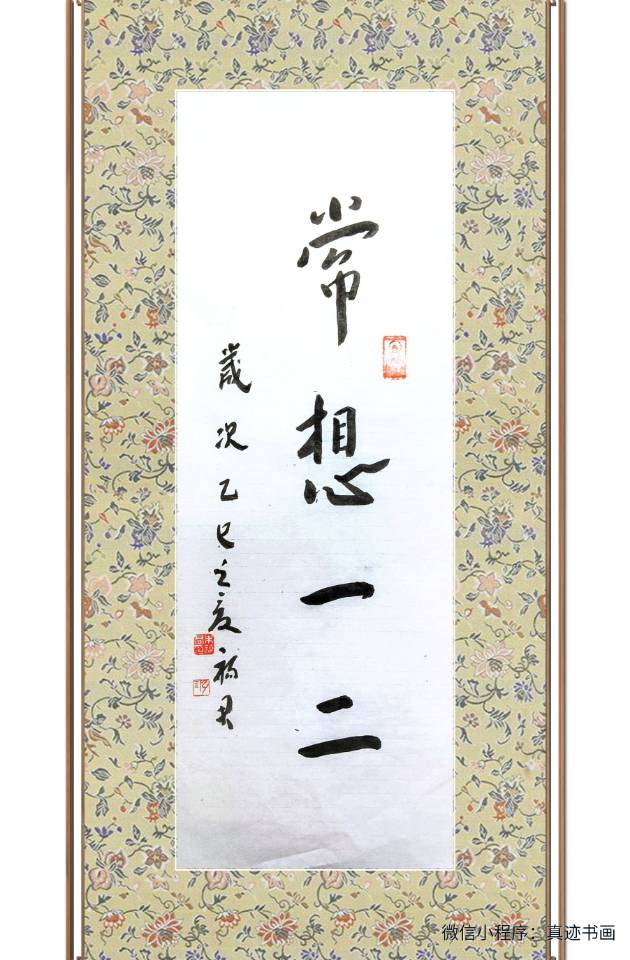 常想一二
歲次乙巳之夏福君
微信小程序：真迹书画